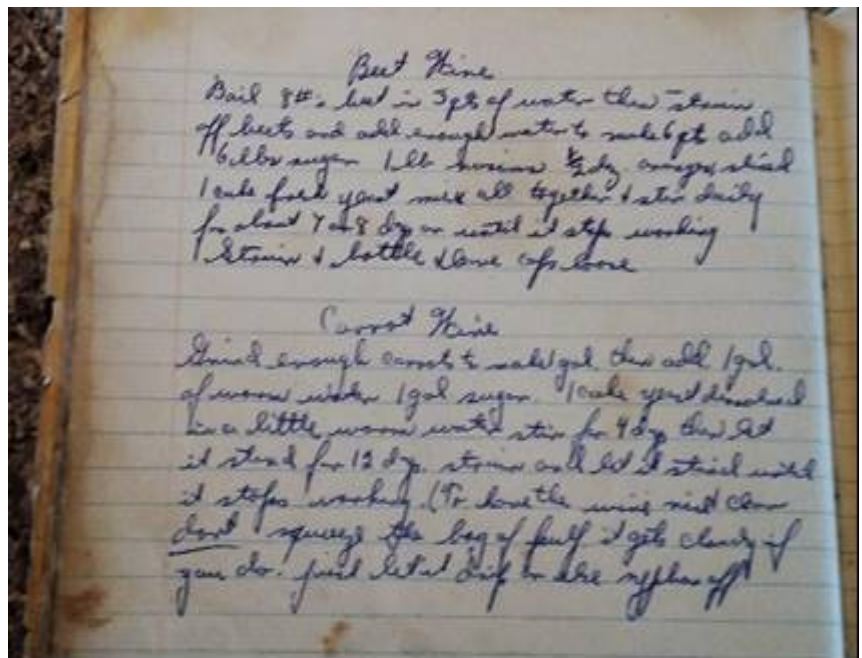 Beet Wine
Boil 8#s beet in 3 pts of water then strain
off beets and add enough water to make 6 pt add
6 lbs sugar 1 lb raisins ½ dz oranges sliced
1 cake fresh yeast mix all together & stir daily
for about 7 or 8 dys or until it stops working
Strain & bottle & leave caps loose
Carrot Wine
Grind enough carrots to make 1 gal. then add 1 gal.
of warm water 1 gal sugar. 1 cake yeast dissolved
in a little warm water stir for 4 dys then let
it stand for 12 dys. strain and let it stand until
it stops working. (To have the wine nice & clear
dont squeeze the bag of pulp it gets cloudy if
you do. just let it drip or else off